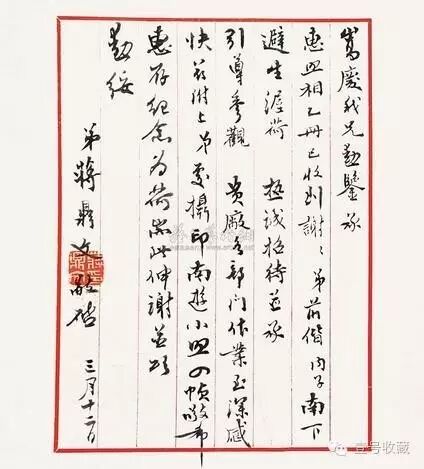 嵩慶我兄勛鑒承
惠照相乙冊已收到謝〻弟前偕內子南下
避生渥荷 極誠招待並承
引導參觀 貴廠各部門作業至深感
快茲附上弟處攝印南遊小照四幀敬希
惠存紀念為荷耑此伸謝並頌
勛綏
弟蔣鼎文敬啟 三月十二日
壹号收藏